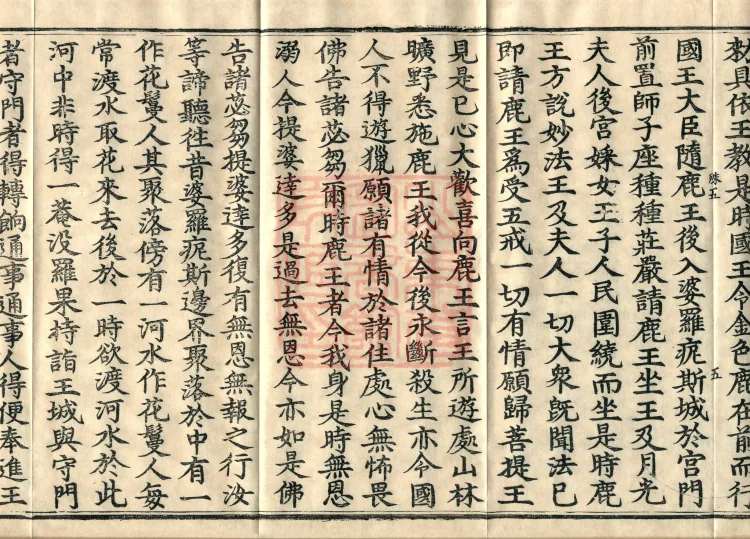 敕具依王教是時國王令金色鹿在前而行
陜五
五
國王大臣隨鹿王後入婆羅痆斯城於宮門
前置師子座種種莊嚴請鹿王坐王及月光
夫人後宮婇女王子人民圍繞而坐是時鹿
王方說妙法王及夫人一切大衆旣聞法已
即請鹿王爲受五戒一切有情願歸菩提王
見是已心大歡喜向鹿王言王所遊處山林
曠野悉施鹿王我從今後永斷殺生亦令國
人不得遊獵願諸有情於諸住處心無怖畏
佛告諸苾芻爾時鹿王者今我身是時無恩
溺人今提婆達多是過去無恩今亦如是佛
告諸苾芻提婆達多復有無恩無報之行汝
等諦聽往昔婆羅痆斯邊界聚落於中有一
作花鬘人其聚落傍有一河水作花鬘人每
常渡水取花來去後於一時欲渡河水於此
河中非時得一菴没羅果持詣王城與守門
者守門者得轉餉通事通事人得便奉進王